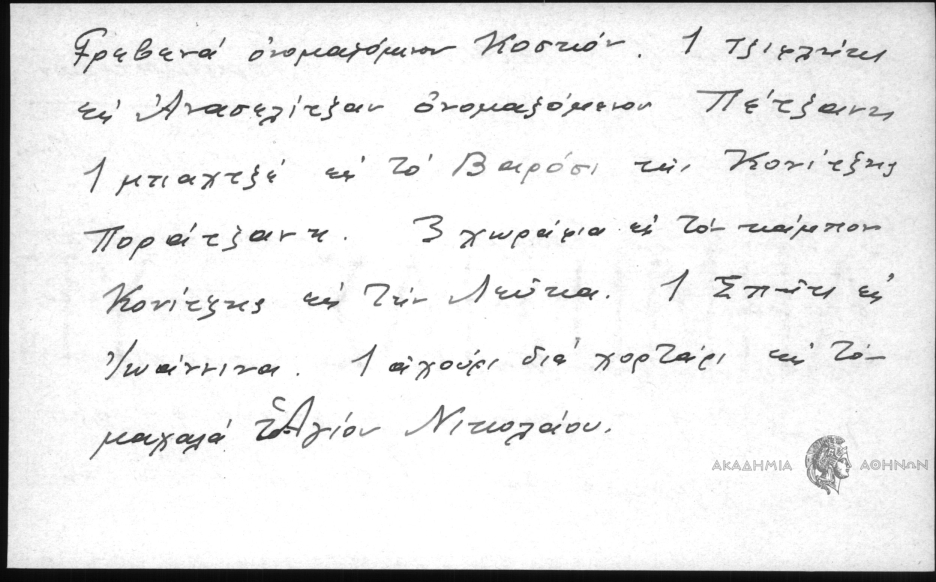 Γρεβενά ὀνομαζόμενον Κοστιόν. 1 τζιφλίκι
εἰς Ἀνασελίτζαν ὀνομαζόμενον Πέτζανη
1 μπαχτζέ εἰς τό Βαρόσι τῆς Κονίτζης
Ποράτζανη. 3 χωράφια εἰς τόν κάμπον
Κονίτζης εἰς τήν Λεῦκα. 1 Σπήτι εἰς
Ἰωάννινα. 1 ἀχούρι διά χορτάρι εἰς τό
μαχαλά τοῦ Ἁγίου Νικολάου.
ΑΚΑΔΗΜΙΑ ΑΘΗΝΩΝ